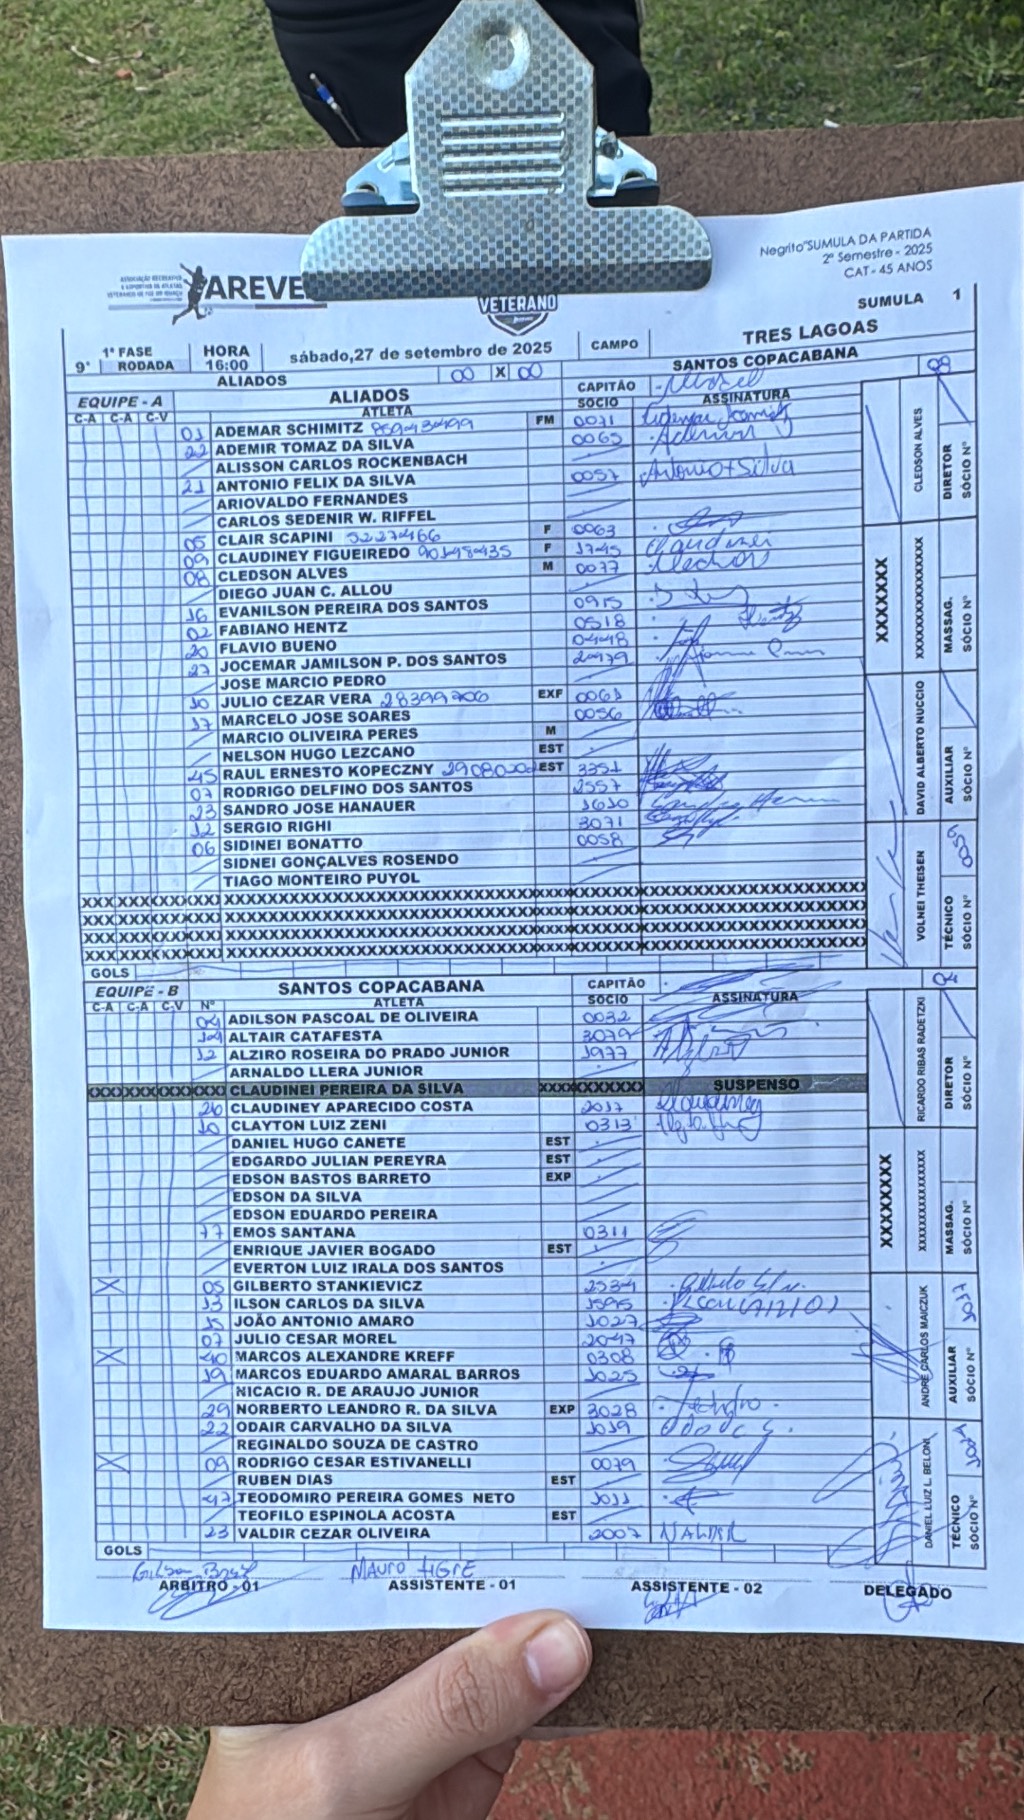 Negrito"SUMULA DA PARTIDA
2º Semestre - 2025
CAT - 45 ANOS
ASSOCIAÇÃO RECREATIVA
E ESPORTIVA DE ATLETAS
VETERANOS DE FOZ DO IGUAÇU
AREVE
VETERANO
SUMULA 1
9ª 1ª FASE RODADA HORA 16:00 sábado,27 de setembro de 2025 CAMPO TRES LAGOAS
ALIADOS 00 X 00 SANTOS COPACABANA
EQUIPE - A ALIADOS CAPITÃO 08
C-A C-A C-V ATLETA SÓCIO ASSINATURA
01 ADEMAR SCHIMITZ FM 0071
22 ADEMIR TOMAZ DA SILVA 0065 Ademir
ALISSON CARLOS ROCKENBACH
21 ANTONIO FELIX DA SILVA 0057 Antonio F Silva
ARIOVALDO FERNANDES
CARLOS SEDENIR W. RIFFEL
05 CLAIR SCAPINI 5227466 F 0063
09 CLAUDINEY FIGUEIREDO F 1745 Claudinei
08 CLEDSON ALVES M 0077 Cledson
DIEGO JUAN C. ALLOU
16 EVANILSON PEREIRA DOS SANTOS 0915
02 FABIANO HENTZ 0518
20 FLAVIO BUENO 0448
27 JOCEMAR JAMILSON P. DOS SANTOS 2479
JOSE MARCIO PEDRO
10 JULIO CEZAR VERA EXF 0061
17 MARCELO JOSE SOARES 0056
MARCIO OLIVEIRA PERES M
NELSON HUGO LEZCANO EST
45 RAUL ERNESTO KOPECZNY EST 3351
07 RODRIGO DELFINO DOS SANTOS 2557
23 SANDRO JOSE HANAUER 1610
12 SERGIO RIGHI 3071
06 SIDINEI BONATTO 0058
SIDNEI GONÇALVES ROSENDO
TIAGO MONTEIRO PUYOL
GOLS
CLEDSON ALVES DIRETOR SÓCIO Nº
XXXXXXX XXXXXXXXXXXXXXX MASSAG. SÓCIO Nº
DAVID ALBERTO NUCCIO AUXILIAR SÓCIO Nº
VOLNEI THEISEN TÉCNICO SÓCIO Nº 0059
EQUIPE - B SANTOS COPACABANA CAPITÃO 04
C-A C-A C-V Nº ATLETA SÓCIO ASSINATURA
04 ADILSON PASCOAL DE OLIVEIRA 0032
14 ALTAIR CATAFESTA 3079
12 ALZIRO ROSEIRA DO PRADO JUNIOR 1977
ARNALDO LLERA JUNIOR
XXXXXXXXXXXXXXX CLAUDINEI PEREIRA DA SILVA XXXXXXXXXXX SUSPENSO
26 CLAUDINEY APARECIDO COSTA 2017 Claudiney
10 CLAYTON LUIZ ZENI 0313
DANIEL HUGO CANETE EST
EDGARDO JULIAN PEREYRA EST
EDSON BASTOS BARRETO EXP
EDSON DA SILVA
EDSON EDUARDO PEREIRA
77 EMOS SANTANA 0311
ENRIQUE JAVIER BOGADO EST
EVERTON LUIZ IRALA DOS SANTOS
X 05 GILBERTO STANKIEVICZ 2534
13 ILSON CARLOS DA SILVA 1595
15 JOÃO ANTONIO AMARO 1027
07 JULIO CESAR MOREL 2047
X 40 MARCOS ALEXANDRE KREFF 0308
19 MARCOS EDUARDO AMARAL BARROS 1025
NICACIO R. DE ARAUJO JUNIOR
29 NORBERTO LEANDRO R. DA SILVA EXP 3028
22 ODAIR CARVALHO DA SILVA 1019
REGINALDO SOUZA DE CASTRO
X 09 RODRIGO CESAR ESTIVANELLI 0079
RUBEN DIAS EST
47 TEODOMIRO PEREIRA GOMES NETO 1011
TEOFILO ESPINOLA ACOSTA EST
23 VALDIR CEZAR OLIVEIRA 2007 VALDIR
GOLS
RICARDO RIBAS RADETZKI DIRETOR SÓCIO Nº
XXXXXXX XXXXXXXXXXXXXXX MASSAG. SÓCIO Nº
ANDRÉ CARLOS MAICZUK AUXILIAR SÓCIO Nº 1017
DANIEL LUIZ L. BELONI TÉCNICO SÓCIO Nº 1004
Gilson MAURO TIGRE
ARBITRO - 01 ASSISTENTE - 01 ASSISTENTE - 02 DELEGADO